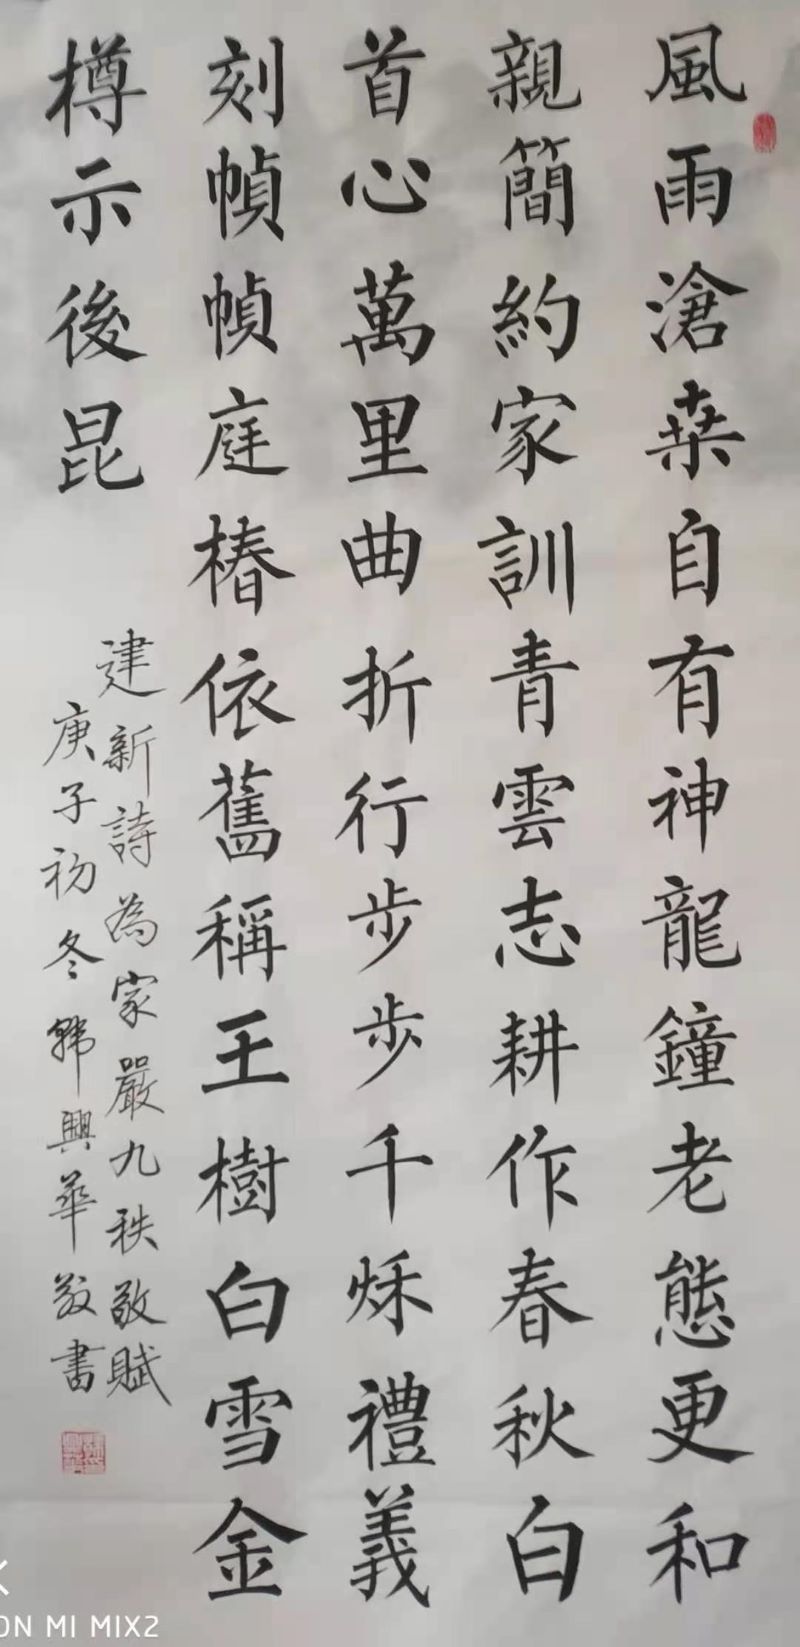 風雨滄桒自有神龍鐘老態更和
親簡約家訓青雲志耕作春秋白
首心萬里曲折行步步千烁禮義
刻幀幀庭椿依舊稱王樹白雪金
樽示後昆
建新詩為家嚴九秩敬賦
庚子初冬韩興華敬書
ON MI MIX2